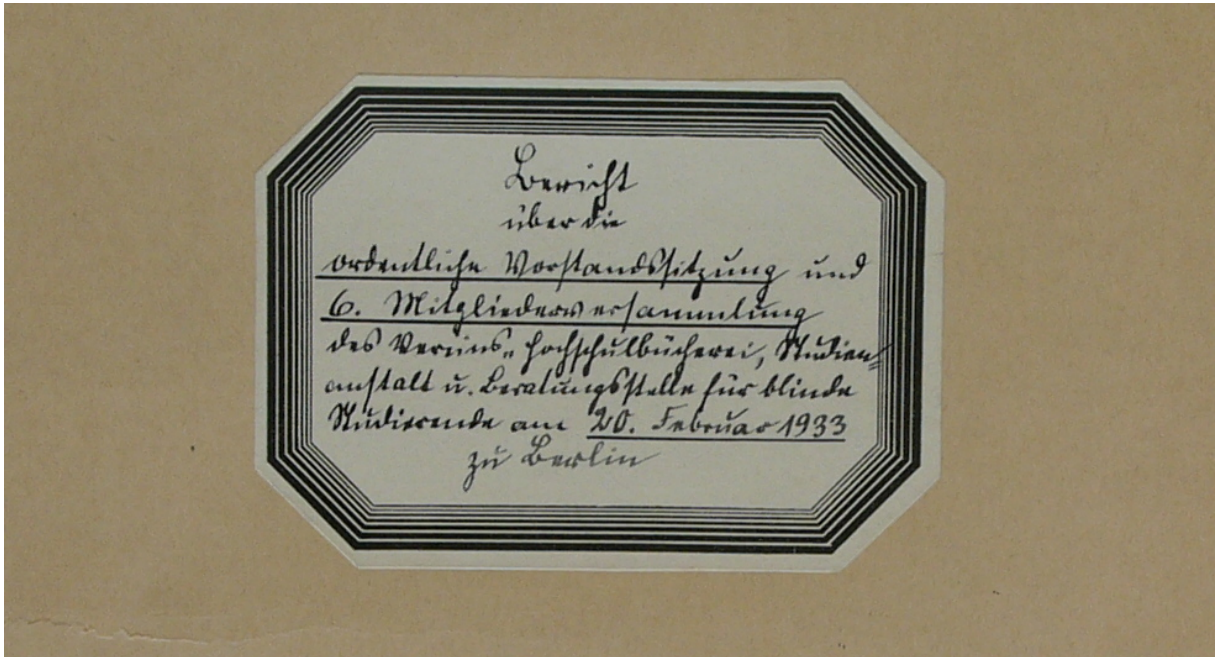 Bericht
über die
ordentliche Vorstandssitzung und
6. Mitgliederversammlung
des Vereins „Hochschulbücherei, Studien=
anstalt u. Beratungsstelle für blinde
Studierende am 20. Februar 1933
zu Berlin